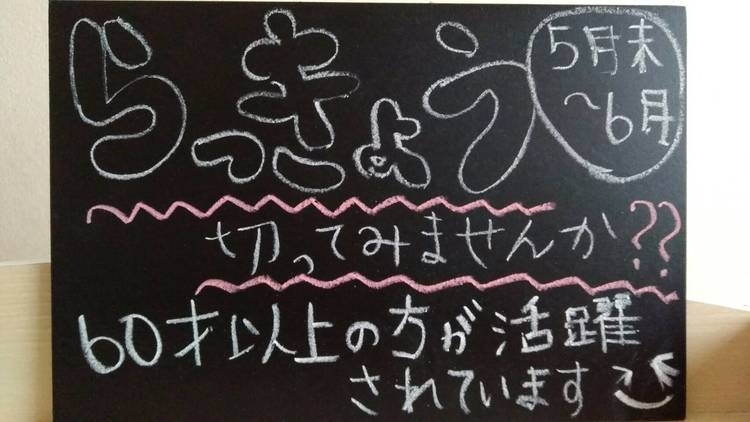 らっきょう
5月末
~6月
切ってみませんか??
60才以上の方が活躍
されています